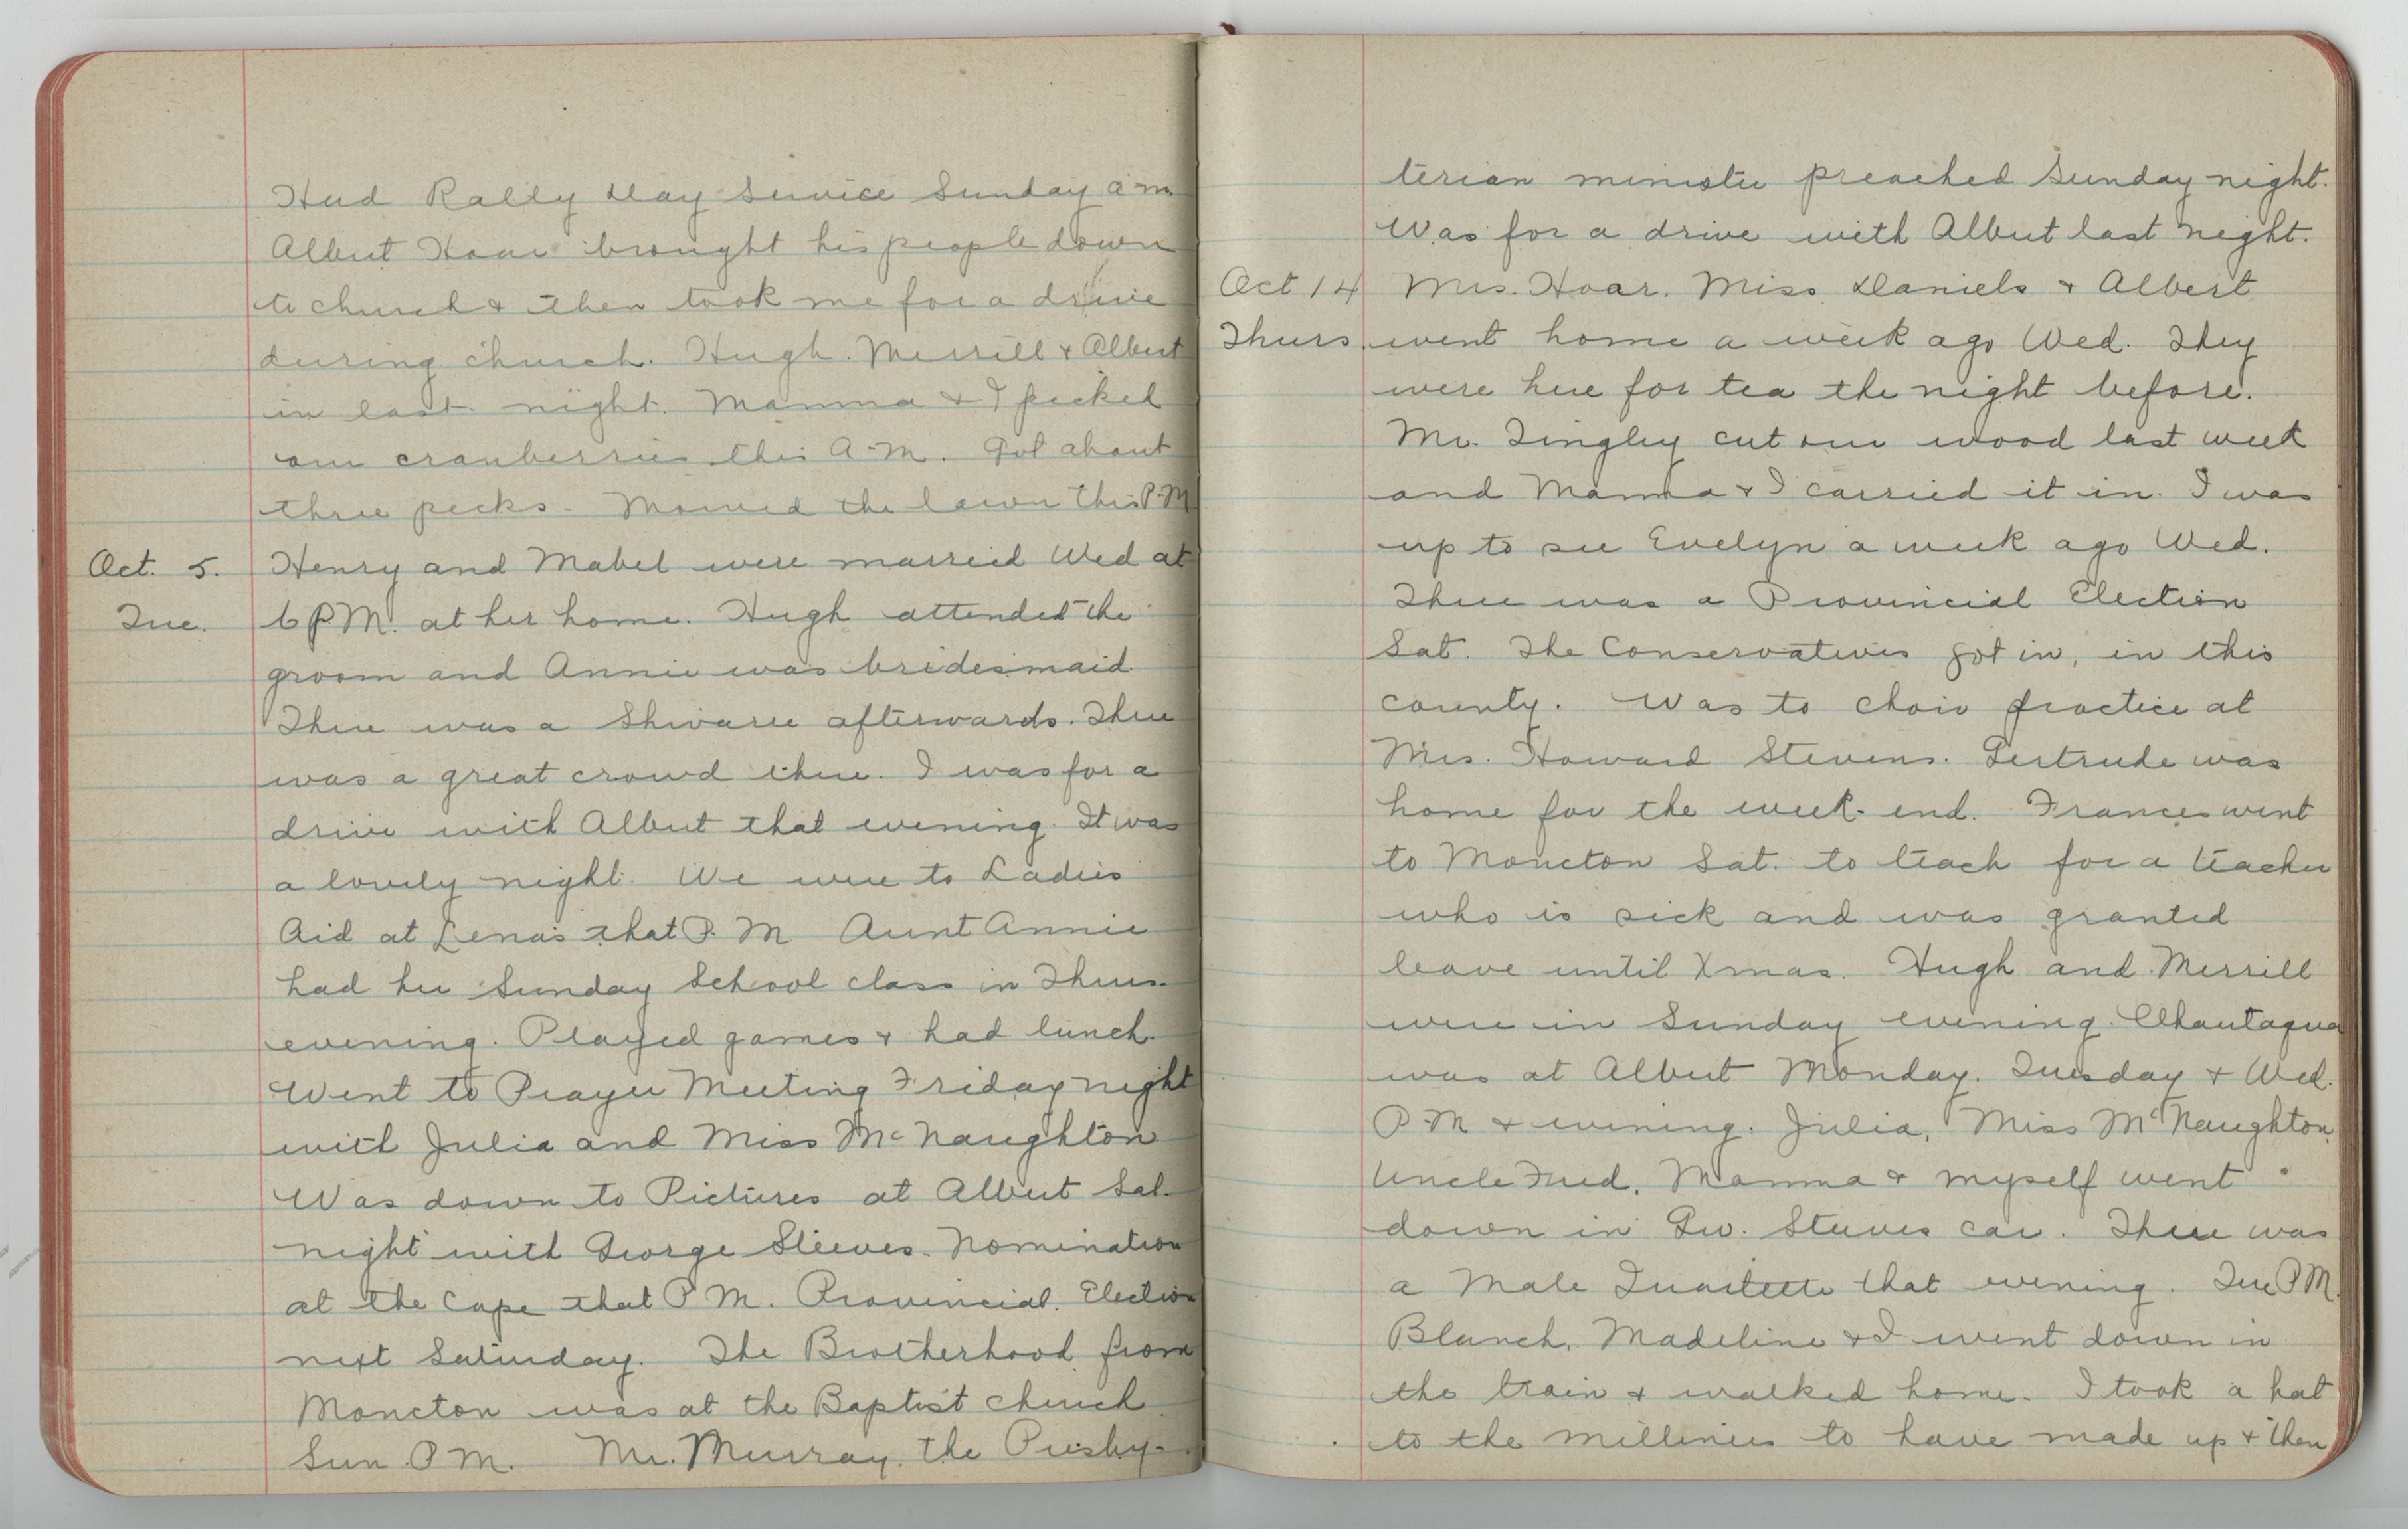 Had Rally Day Service Sunday a m
Albert Hoar brought his people down
to church & then took me for a drive
during church. Hugh. Merrill & Albert
in last night. Mamma & I picked
our cranberries this A.M. Got about
three pecks. Mowed the lawn this P.M
Oct. 5. Henry and Mabel were married Wed at
Tue. 6 P.M. at her home. Hugh attended the
groom and Annie was bridesmaid.
There was a Shivaree afterwards. There
was a great crowd there. I was for a
drive with Albert that evening. It was
a lovely night. We were to Ladies
Aid at Lena's that P. M Aunt Annie
had her Sunday School class in Thurs.
evening. Played games & had lunch.
Went to Prayer Meeting Friday night
with Julia and Miss McNaughton
Was down to Pictures at Albert Sat.
night with George Steeves. Nomination
at the Cape that P M. Provincial. Election
next Saturday. The Brotherhood from
Moncton was at the Baptist church
Sun P M. Mr. Murray, the Presby-
terian minister preached Sunday night.
Was for a drive with Albert last night.
Oct 14 Mrs. Hoar. Miss Daniels & Albert
Thurs. went home a week ago Wed. They
were here for tea the night before.
Mr. Tingley cut our wood last week
and Mamma & I carried it in. I was
up to see Evelyn a week ago Wed.
There was a Provincial Election
Sat. The Conservatives got in, in this
county. Was to choir practice at
Mrs. Howard Stevens. Gertrude was
home for the week-end. Frances went
to Moncton Sat. to teach for a teacher
who is sick and was granted
leave until Xmas. Hugh and Merrill
were in Sunday evening. Chautaqua
was at Albert Monday. Tuesday & Wed.
P.M & evening. Julia, Miss McNaughton,
Uncle Fred, Mamma & myself went
down in Steeves car. There was
a Male Quartette that evening. Tue P.M.
Blanch, Madeline & I went down in
the train & walked home. I took a hat
to the milliners to have made up & then